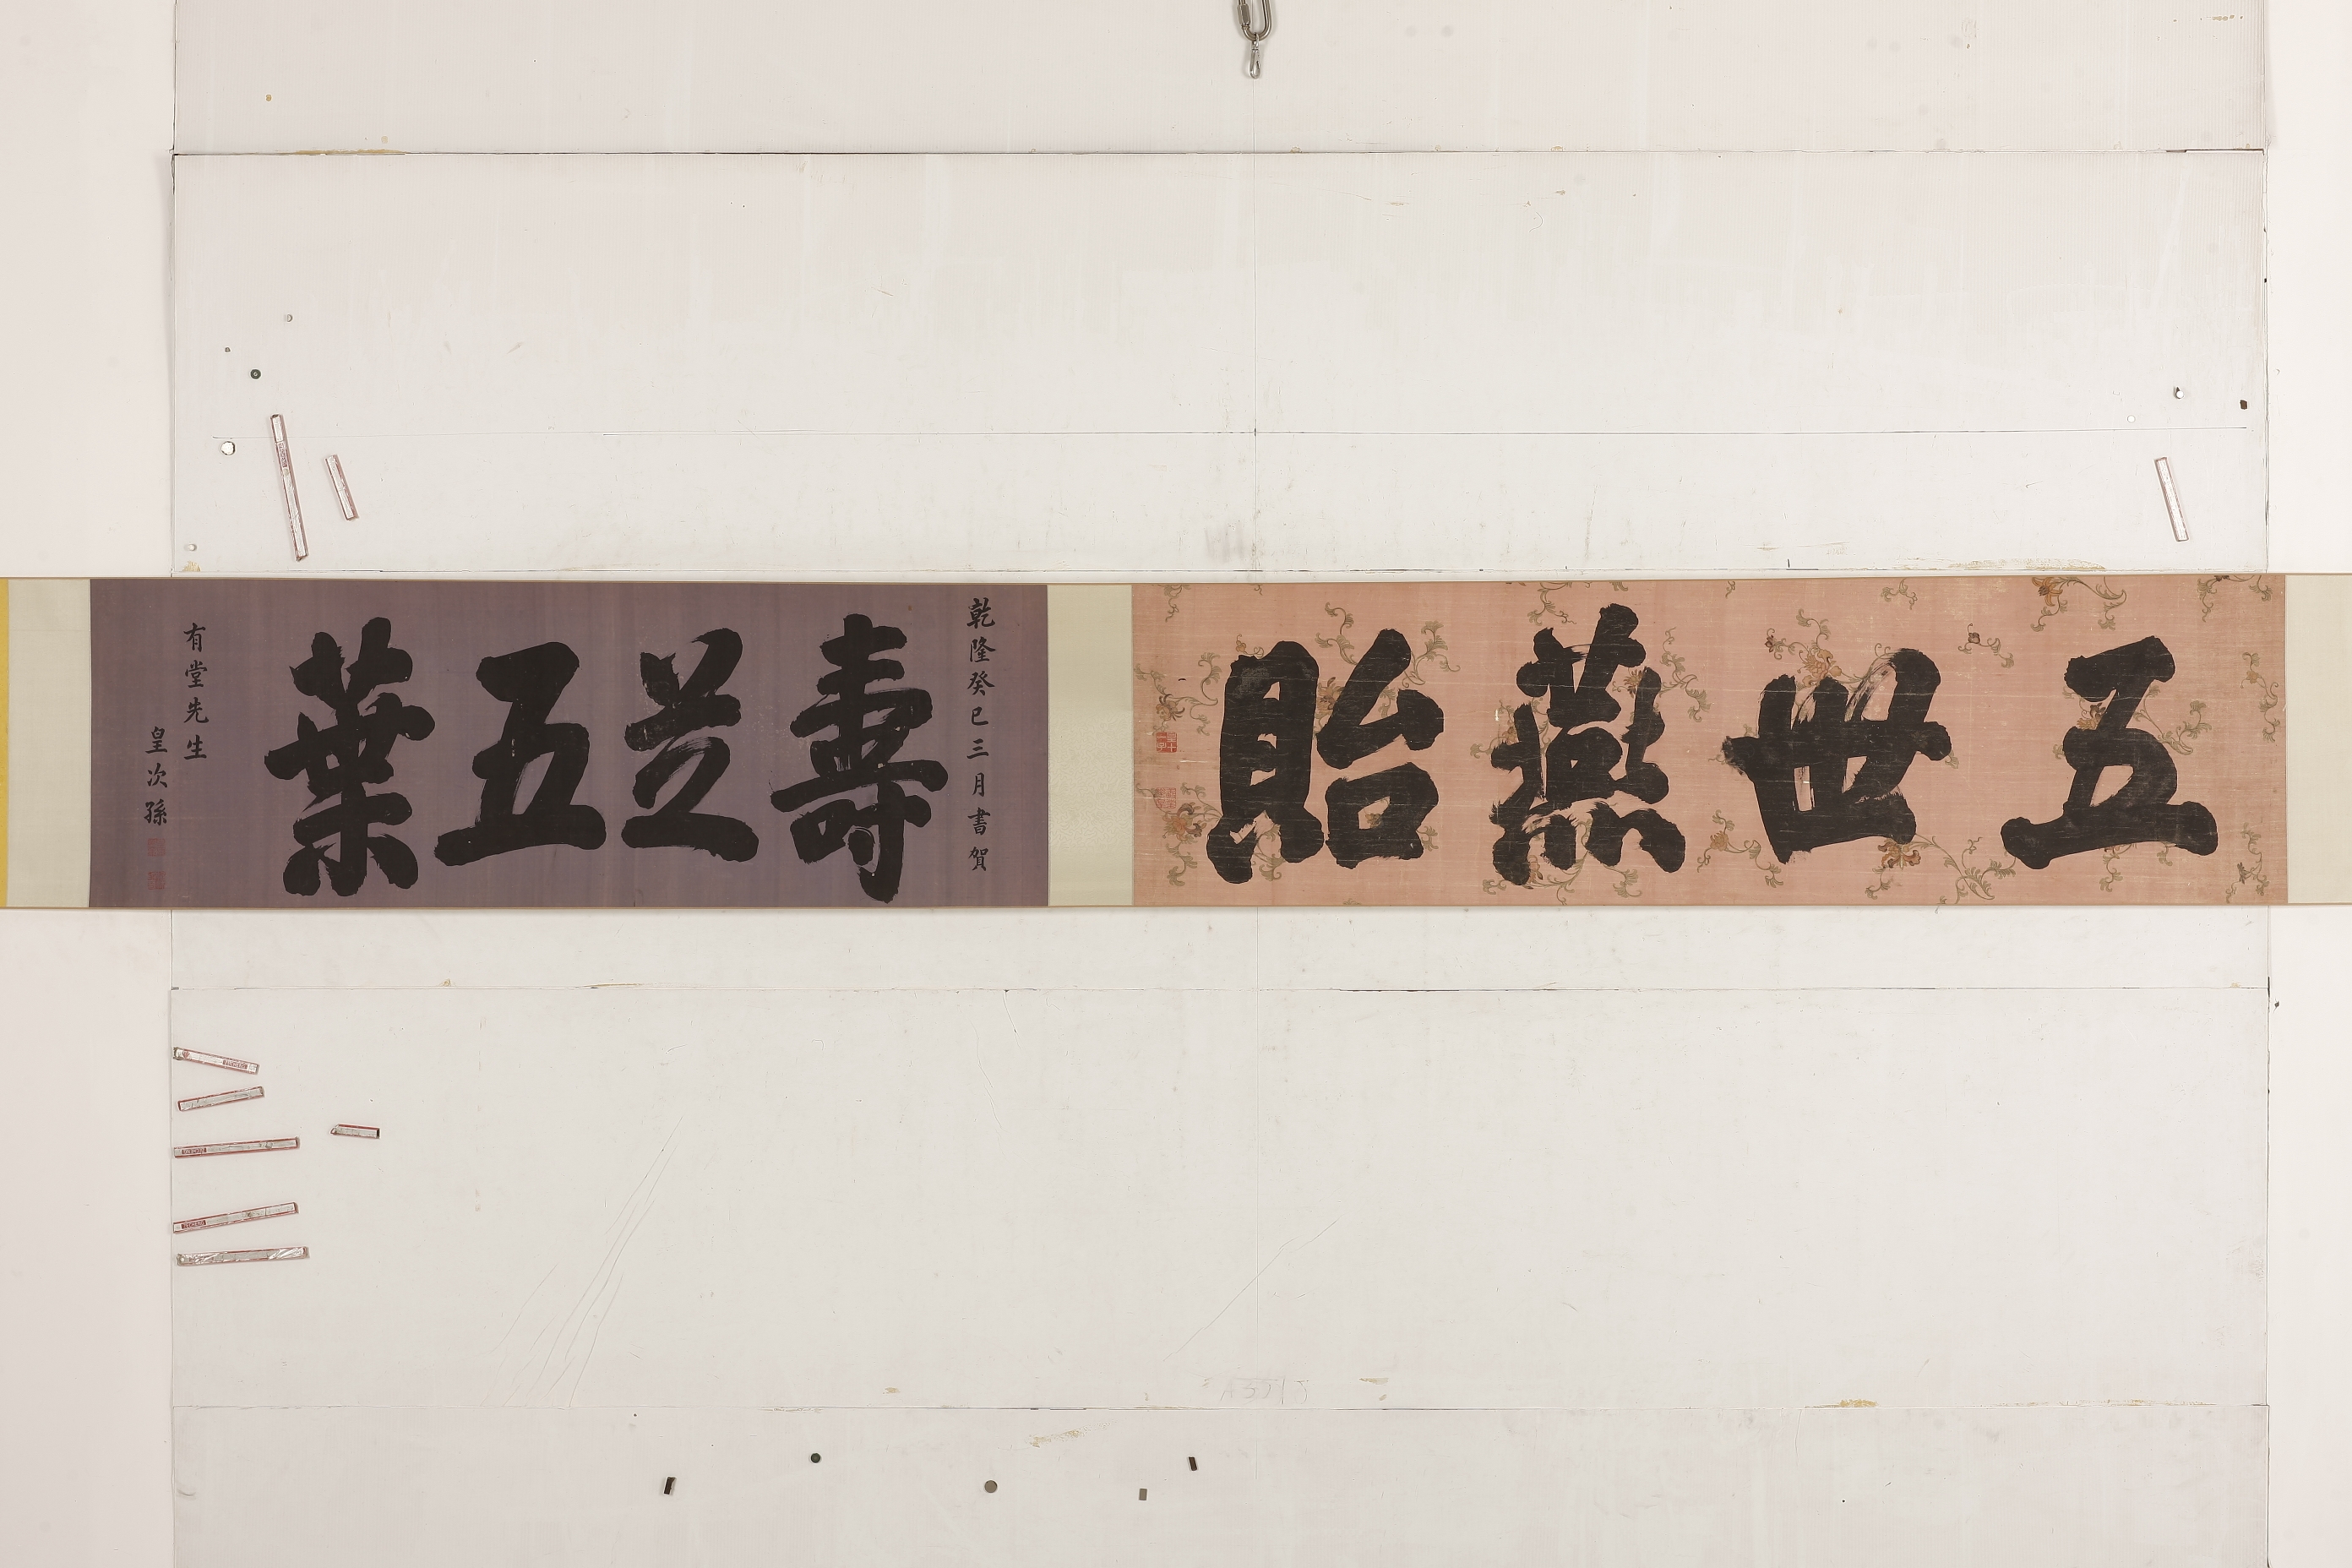 五世燕貽
乾隆癸巳三月書賀
壽芝五葉
有堂先生
皇次孫